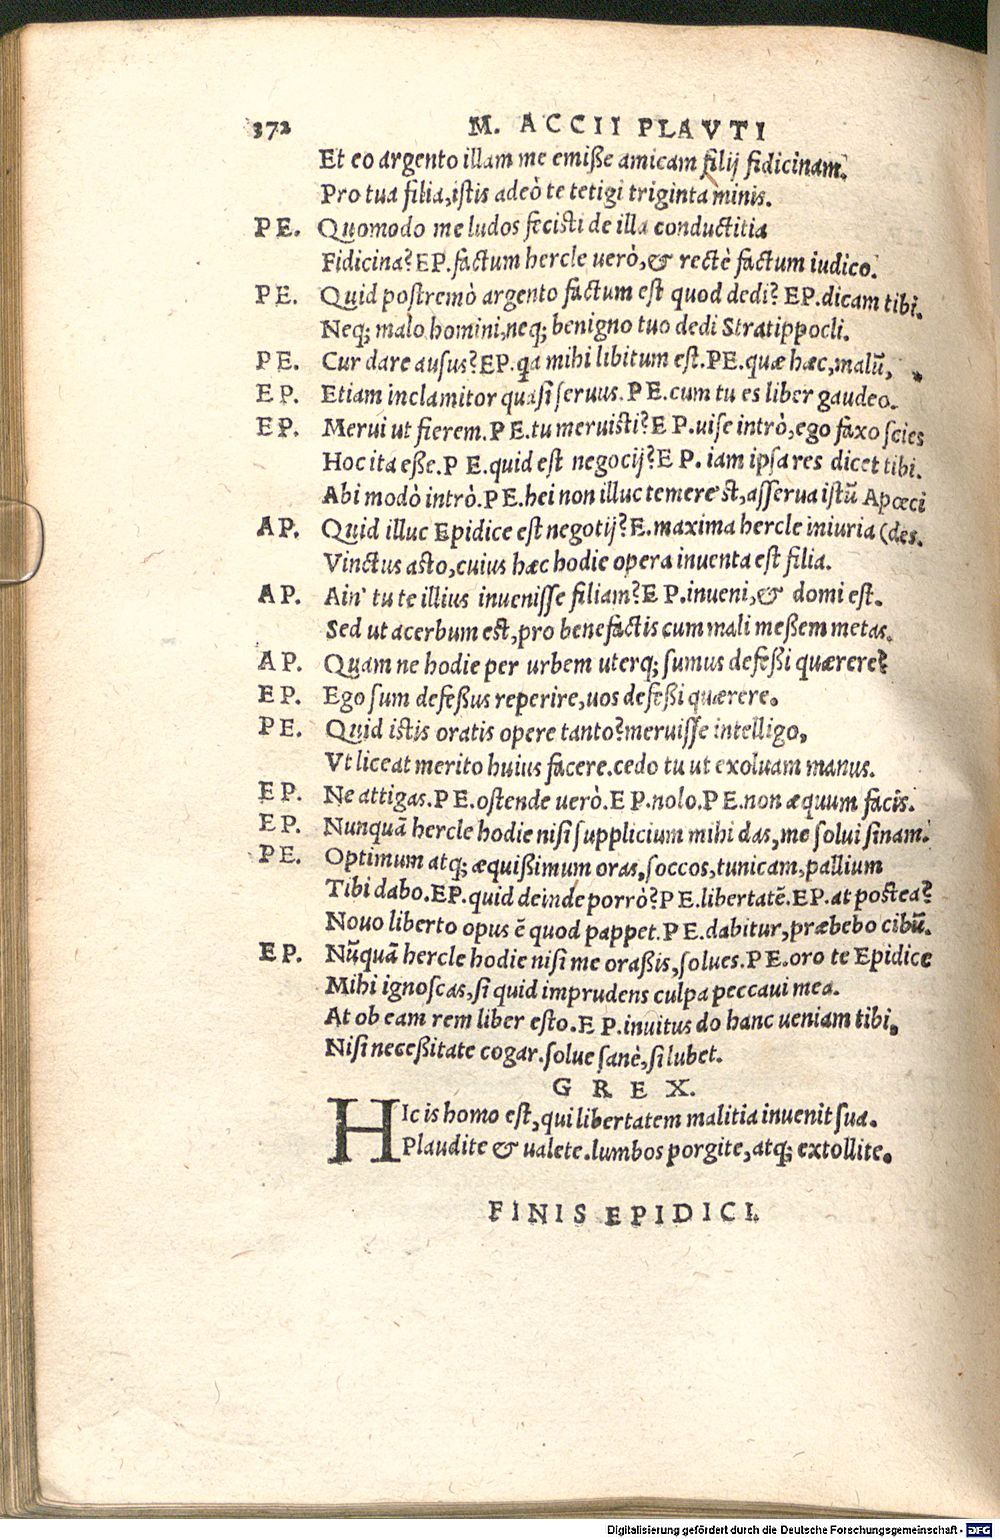 372 M. ACCII PLAVTI
Et eo argento illam me emiße amicam filij fidicinam.
Pro tua filia, istis adeò te tetigi triginta minis.
PE. Quomodo me ludos fecisti de illa conductitia
Fidicina? EP. factum hercle uerò, & rectè factum iudico.
PE. Quid postremò argento factum est quod dedi? EP. dicam tibi.
Neq; malo homini, neq; benigno tuo dedi Stratippocli.
PE. Cur dare ausus? EP. qa mihi libitum est. PE. quæ hæc, malũ,
EP. Etiam inclamitor quasi seruus. PE. cum tu es liber gaudeo.
EP. Merui ut fierem. PE. tu meruisti? EP. uise intrò, ego faxo scies
Hoc ita eße. PE. quid est negocij? EP. iam ipsa res dicet tibi.
Abi modò intrò. PE. hei non illuc temere st, asserua istũ Apœci
AP. Quid illuc Epidice est negotij? E. maxima hercle iniuria (des.
Vinctus asto, cuius hæc hodie opera inuenta est filia.
AP. Ain' tu te illius inuenisse filiam? EP. inueni, & domi est.
Sed ut acerbum est, pro benefactis cum mali meßem metas.
AP. Quam ne hodie per urbem uterq; sumus defeßi quærere?
EP. Ego sum defeßus reperire, uos defeßi quærere.
PE. Quid istis oratis opere tanto? meruisse intelligo,
Vt liceat merito huius facere. cedo tu ut exoluam manus.
EP. Ne attigas. PE. ostende uerò. EP. nolo. PE. non æquum facis.
EP. Nunquã hercle hodie nisi supplicium mihi das, me solui sinam.
PE. Optimum atq; æquißimum oras, soccos, tunicam, pallium
Tibi dabo. EP. quid deinde porrò? PE. libertatẽ. EP. at postea?
Nouo liberto opus ẽ quod pappet. PE. dabitur, præbebo cibũ.
EP. Nũquã hercle hodie nisi me oraßis, solues. PE. oro te Epidice
Mihi ignoscas, si quid imprudens culpa peccaui mea.
At ob eam rem liber esto. EP. inuitus do hanc ueniam tibi,
Nisi neceßitate cogar. solue sanè, si lubet.
GREX.
HIc is homo est, qui libertatem malitia inuenit sua.
Plaudite & ualete. lumbos porgite, atq; extollite.
FINIS EPIDICI.
Digitalisierung gefördert durch die Deutsche Forschungsgemeinschaft - DFG